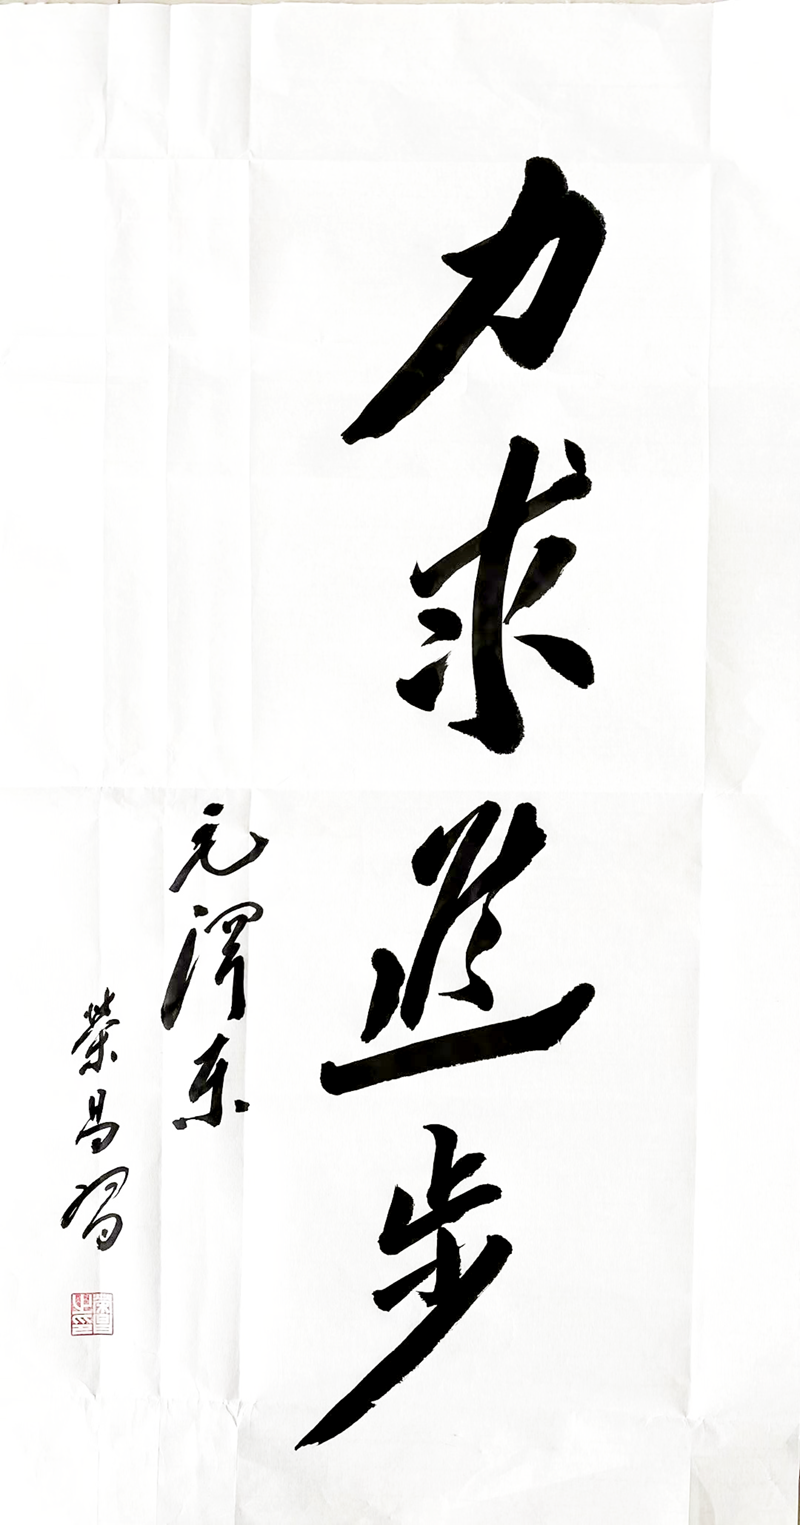 力求進步
毛澤东
榮昌習